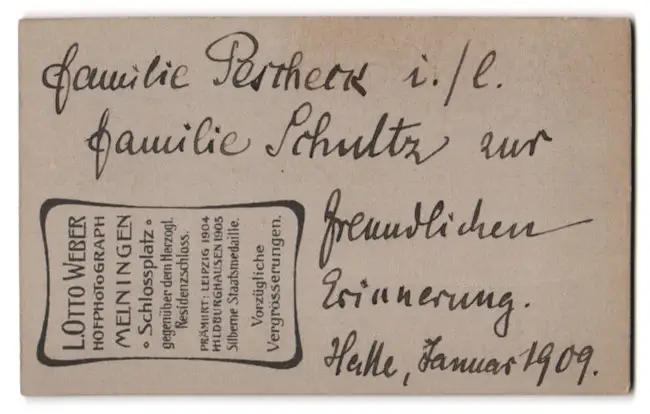 Familie Pescheck i./l.
Familie Schultz zur
freundlichen
Erinnerung.
Halle, Januar 1909.
L. OTTO WEBER
HOFPHOTOGRAPH
MEININGEN
• Schlossplatz •
gegenüber dem Herzogl.
Residenzschloss.
PRÄMIIRT: LEIPZIG 1904
HILDBURGHAUSEN 1905
Silberne Staatsmedaille.
Vorzügliche
Vergrösserungen.